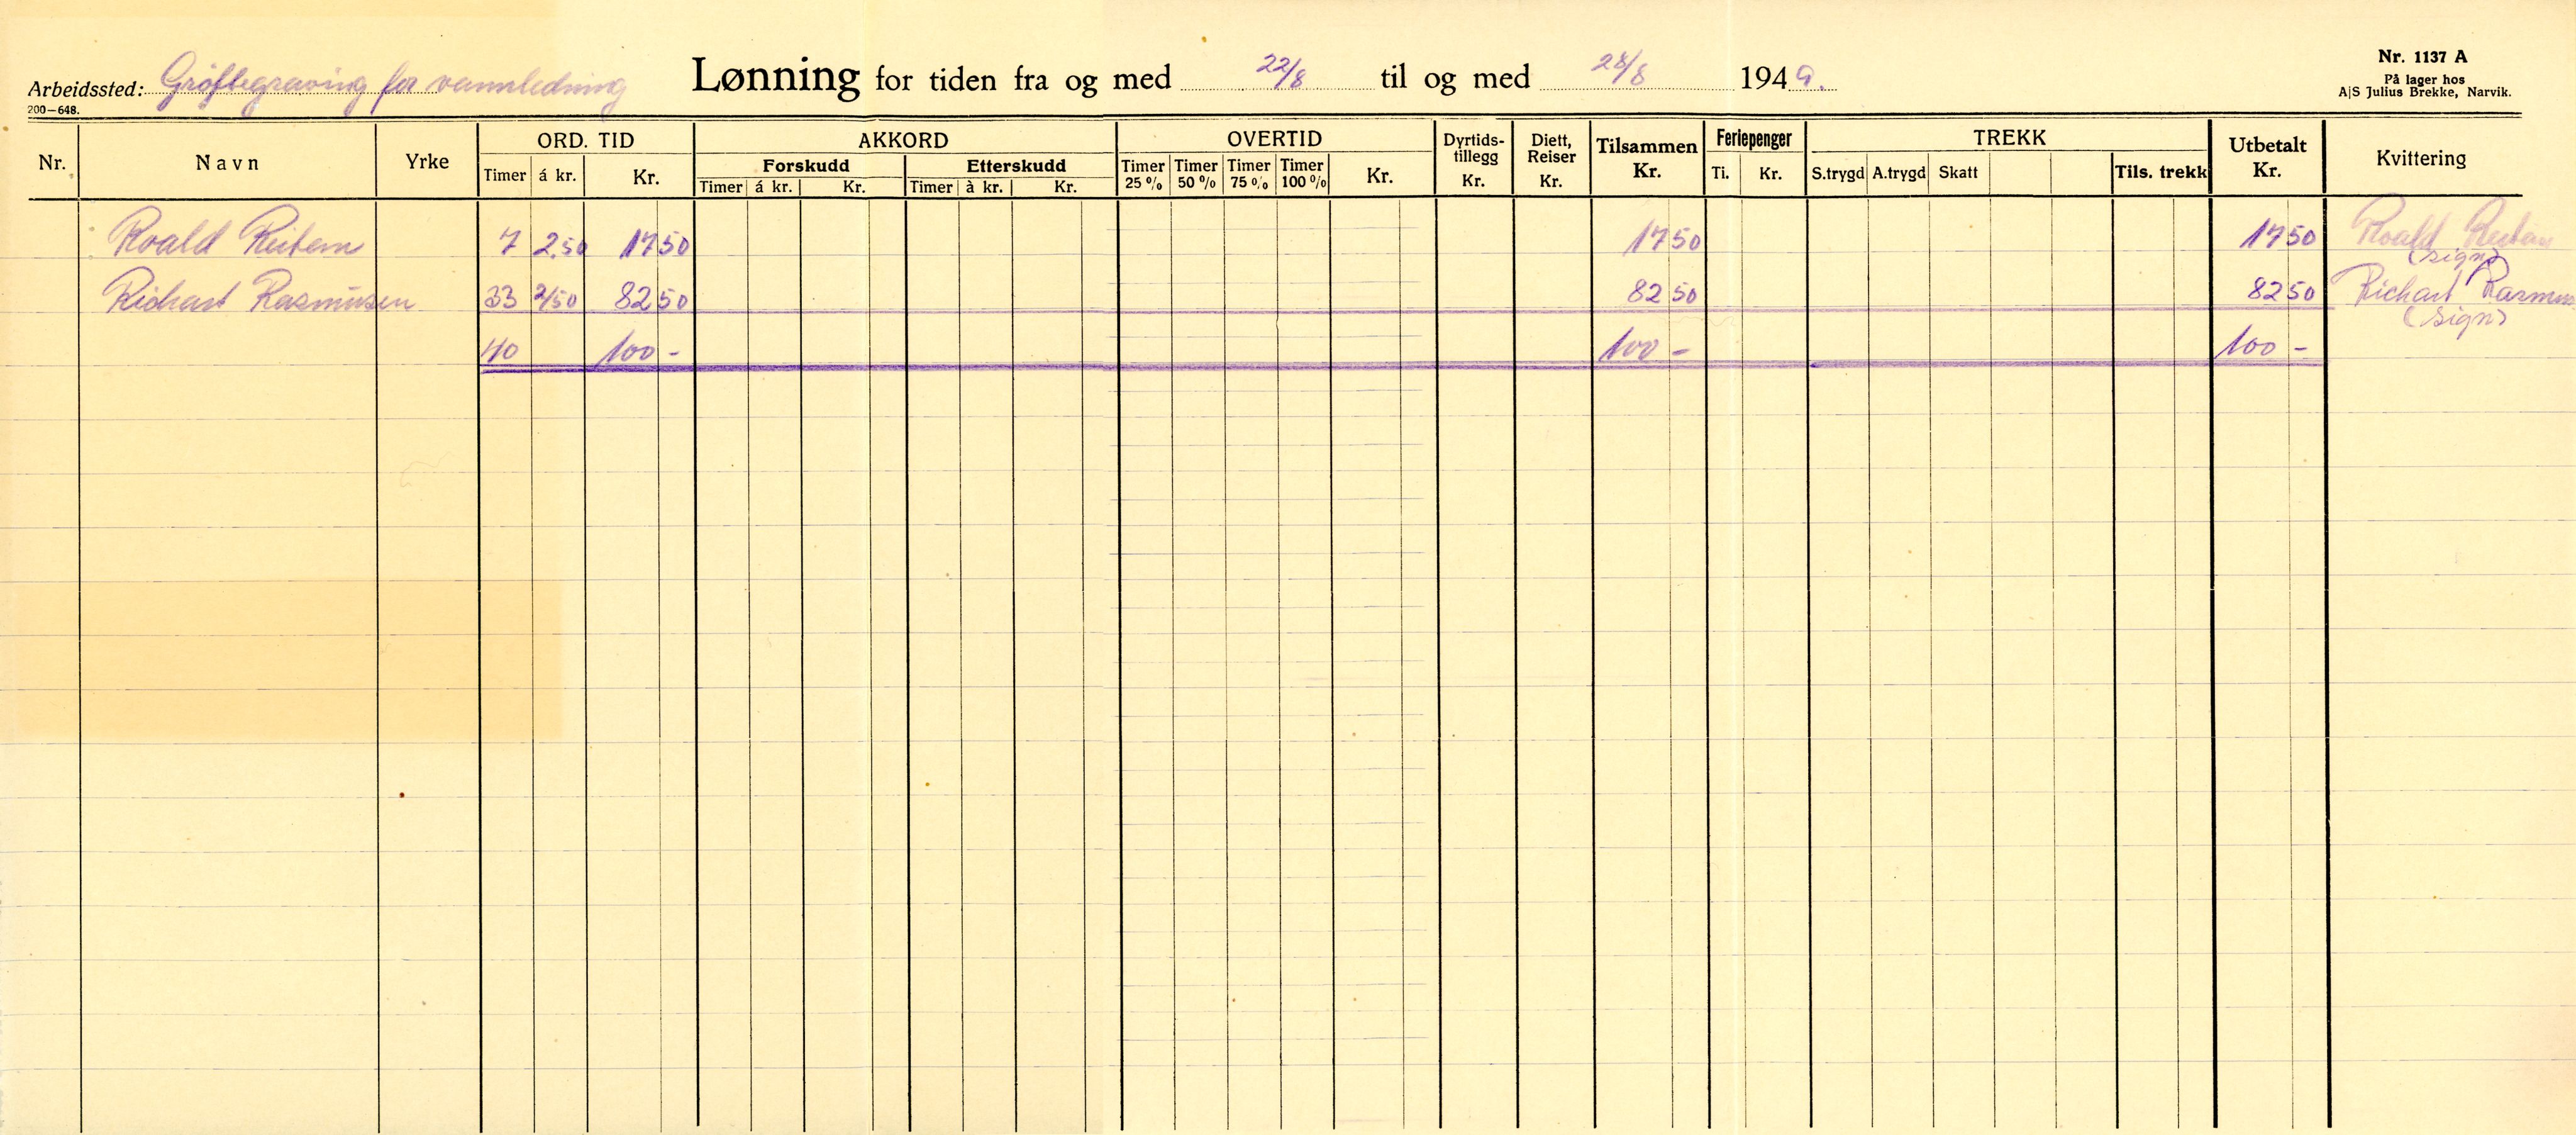 Arbeidssted: Grøftegraving for vannledning Lønning for tiden fra og med 22/8 til og med 28/8 1949.
Nr. 1137 A
På lager hos
A|S Julius Brekke, Narvik.
200-648.
Nr. Navn Yrke ORD. TID AKKORD OVERTID Dyrtids-tillegg Kr. Diett, Reiser Kr. Tilsammen Kr. Feriepenger TREKK Utbetalt Kr. Kvittering
Forskudd Etterskudd
Timer á kr. Kr. Timer á kr. Kr. Timer à kr. Kr. Timer 25 % Timer 50 % Timer 75 % Timer 100 % Kr. Ti. Kr. S.trygd A.trygd Skatt Tils. trekk
Roald Reitan 7 2.50 17 50 17 50 17 50 Roald Reitan
(sign)
Richart Rasmussen 33 2/50 82 50 82 50 82 50 Richart Rasmus
(sign)
40 100 - 100 - 100 -